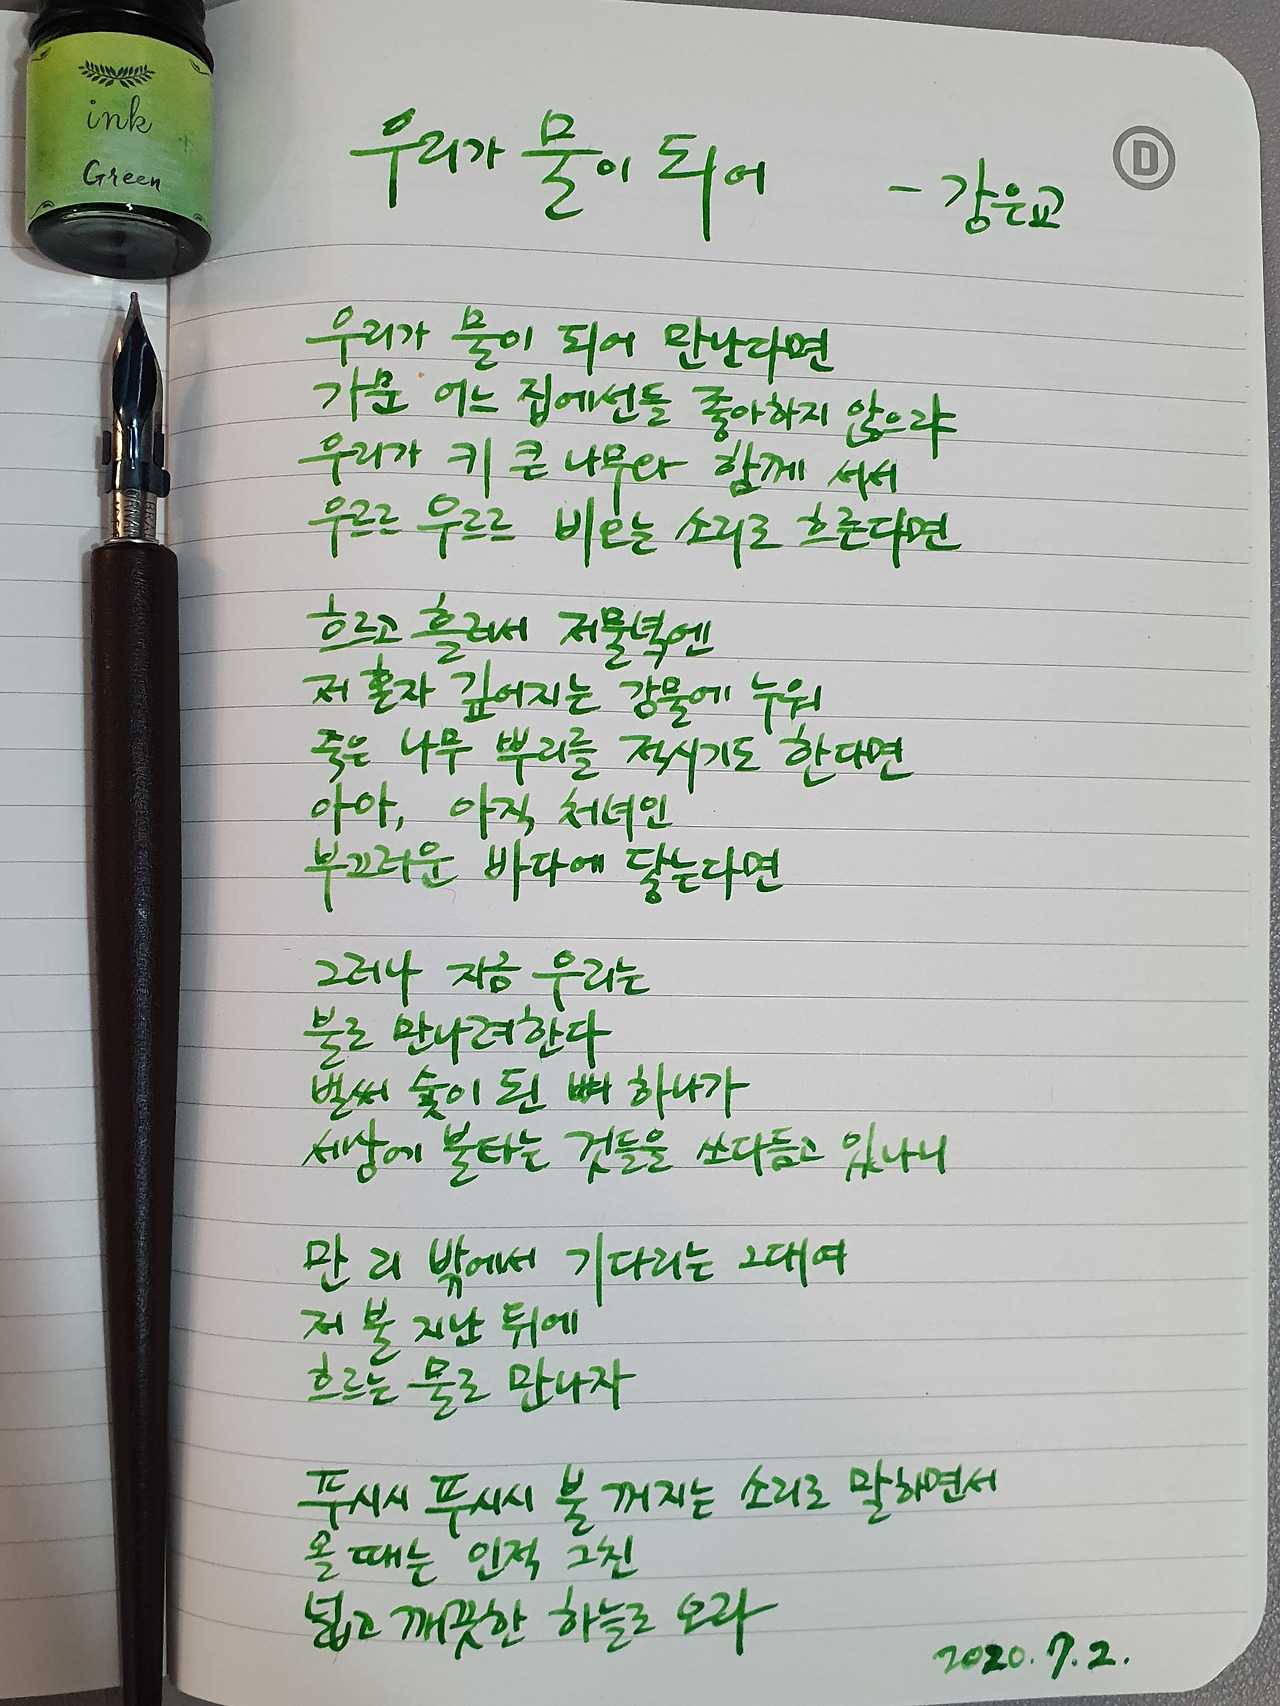 ink
Green
D
우리가 물이 되어
- 강은교
우리가 물이 되어 만난다면
가문 어느 집에선들 좋아하지 않으랴
우리가 키 큰 나무와 함께 서서
우르르 우르르 비오는 소리로 흐른다면
흐르고 흘러서 저물녘엔
저 혼자 깊어지는 강물에 누워
죽은 나무 뿌리를 적시기도 한다면
아아, 아직 처녀인
부끄러운 바다에 닿는다면
그러나 지금 우리는
불로 만나려한다
벌써 숯이 된 뼈 하나가
세상에 불타는 것들을 쓰다듬고 있나니
만 리 밖에서 기다리는 그대여
저 불 지난 뒤에
흐르는 물로 만나자
푸시시 푸시시 불 꺼지는 소리로 말하면서
올 때는 인적 그친
넓고 깨끗한 하늘로 오라
2020.7.2.